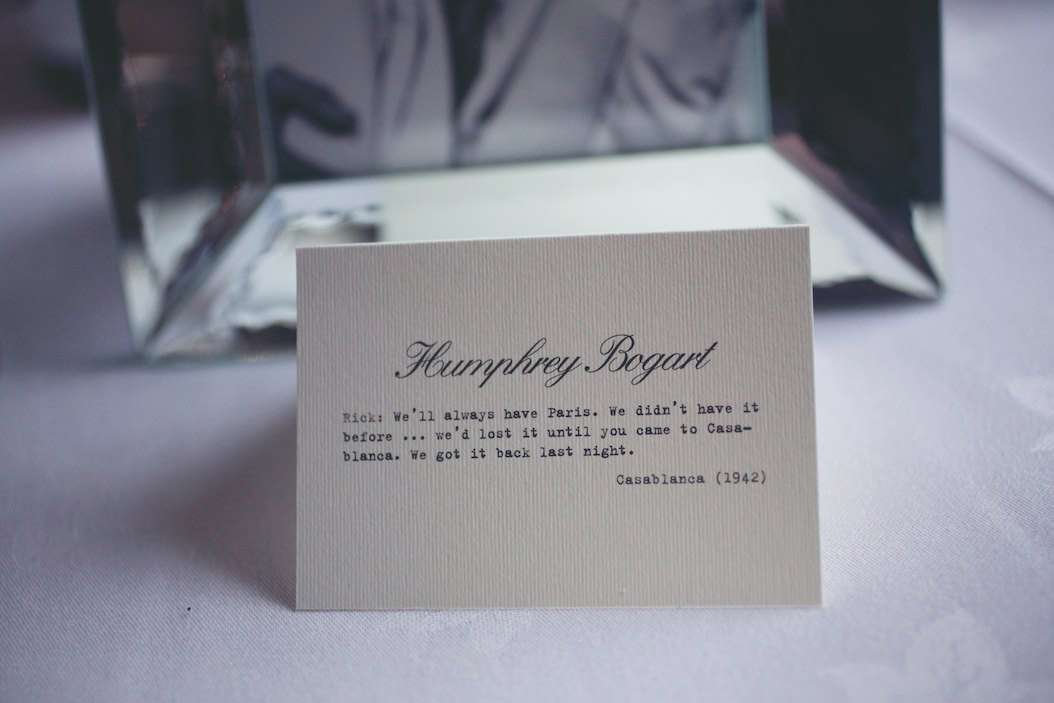 Humphrey Bogart
Rick: We'll always have Paris. We didn't have it
before ... we'd lost it until you came to Casa-
blanca. We got it back last night.
Casablanca (1942)